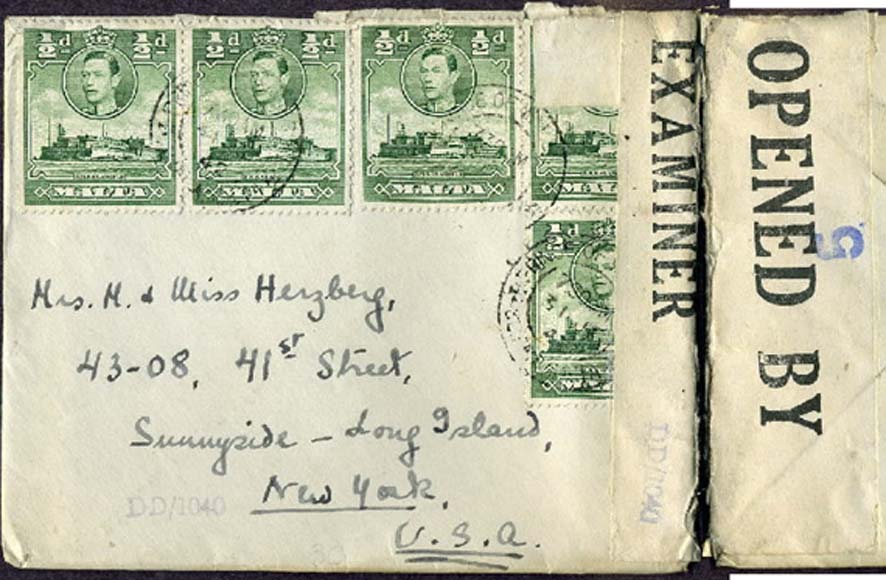 ½d ½d
MALTA
½d ½d
MALTA
½d ½d
MALTA
MALTA
½d
MALTA
EXAMINER
OPENED BY
5
Mrs. M. & Miss Herzberg,
43-08, 41st Street,
Sunnyside - Long Island,
New York,
U.S.A.
DD/1040
DD/1040